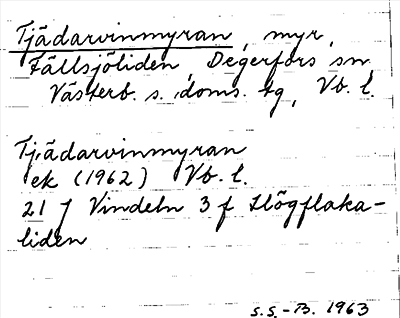 Tjädarvinmyran, myr,
Fällsjöliden, Degerfors sn
Västerb. s. doms. tg, Vb. l.
Tjädarvinmyran
ek (1962) Vb. l.
21 J Vindeln 3 f Högflaka-
liden
S.S.-B. 1963